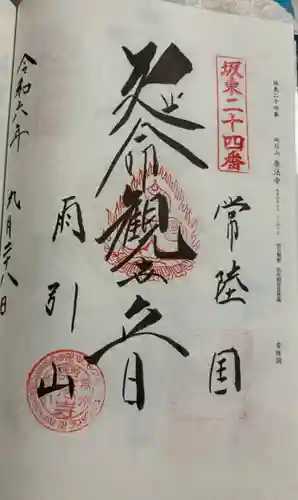 坂東二十四番
雨引山 楽法寺
常陸国
坂東二十四番
常陸国
延命観世音
雨引山
令和六年 九月二十八日